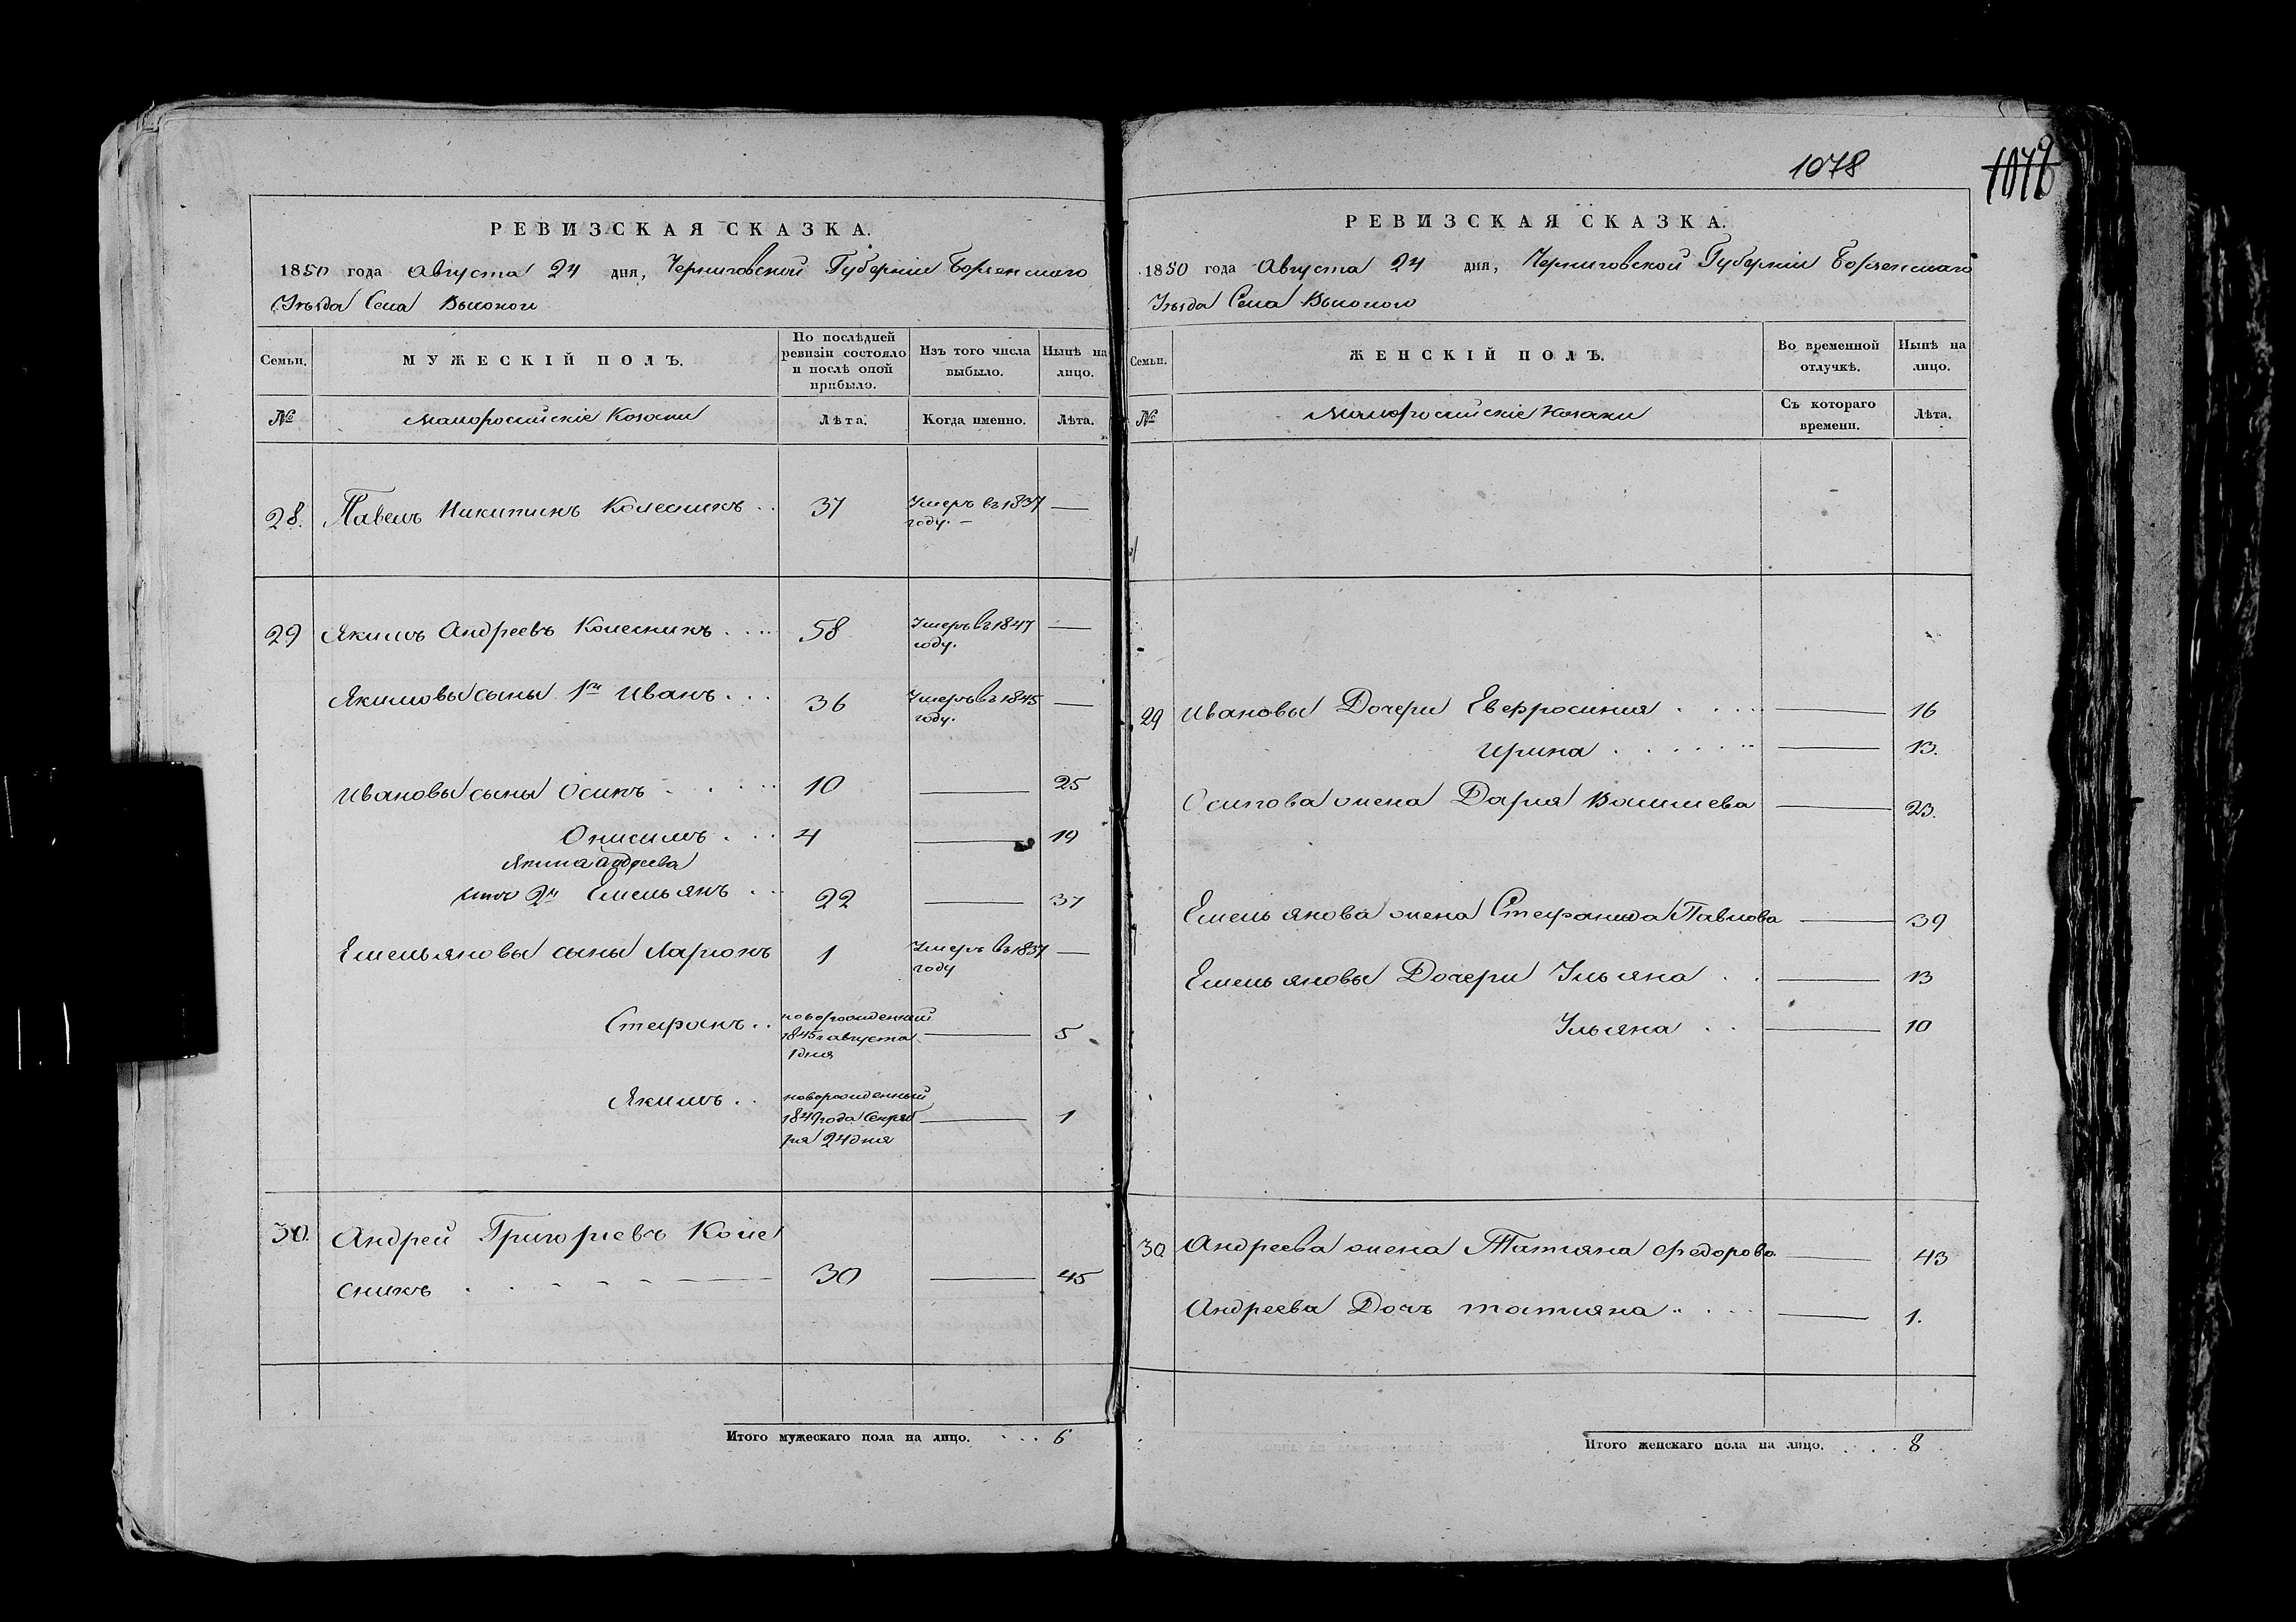 1078
1079
РЕВИЗСКАЯ СКАЗКА.
1850 года Августа 24 дня, Черниговской Губерніи Борзенскаго
Уѣзда Села Высокого
Семьи.
МУЖЕСКІЙ ПОЛЪ.
По послѣдней ревизіи состояло и послѣ оной прибыло.
Изъ того числа выбыло.
Нынѣ на лицо.
№
Малороссійскіе Козаки
Лѣта.
Когда именно.
Лѣта.
28. Павелъ Никитинъ Колесникъ . . 37 Умеръ въ 1837 году. —
29 Якимъ Андреевъ Колесникъ . . . . 58 Умеръ въ 1847 году. —
Якимовы сыны 1й Иванъ . . . 36 Умеръ въ 1845 году. —
Ивановы сыны Осипъ . . . . . 10 — 25
Онисимъ . . . 4 — 19
Якима Андреева
сынъ 2й Емельянъ . . . 22 — 37
Емельяновы сыны Ларионъ 1 Умеръ въ 1837 году —
Стефанъ . . новорожденный 1845 г августа 1 дня — 5
Якимъ . . новорожденный 1849 года 24 дня — 1
30. Андрей Григорьевъ Коле
сникъ . . . . . 30 — 45
Итого мужескаго пола на лицо. . . . 6
РЕВИЗСКАЯ СКАЗКА.
1850 года Августа 24 дня, Черниговской Губерніи Борзенскаго
Уѣзда Села Высокого
Семьи.
ЖЕНСКІЙ ПОЛЪ.
Во временной отлучкѣ.
Нынѣ на лицо.
№
Малороссійскіе Козаки
Съ котораго времени.
Лѣта.
29 Ивановы Дочери Евфросиния . . . . — 16
Ирина . . . . . . . — 13.
Осипова жена Дария — 23.
Емельянова жена Стефанида Павлова — 39
Емельяновы Дочери Ульяна . . — 13
Ульяна . . — 10
30 Андреева жена Татияна Федорова — 43
Андреева Дочь татияна . . . . — 1.
Итого женскаго пола на лицо. . . . . 8